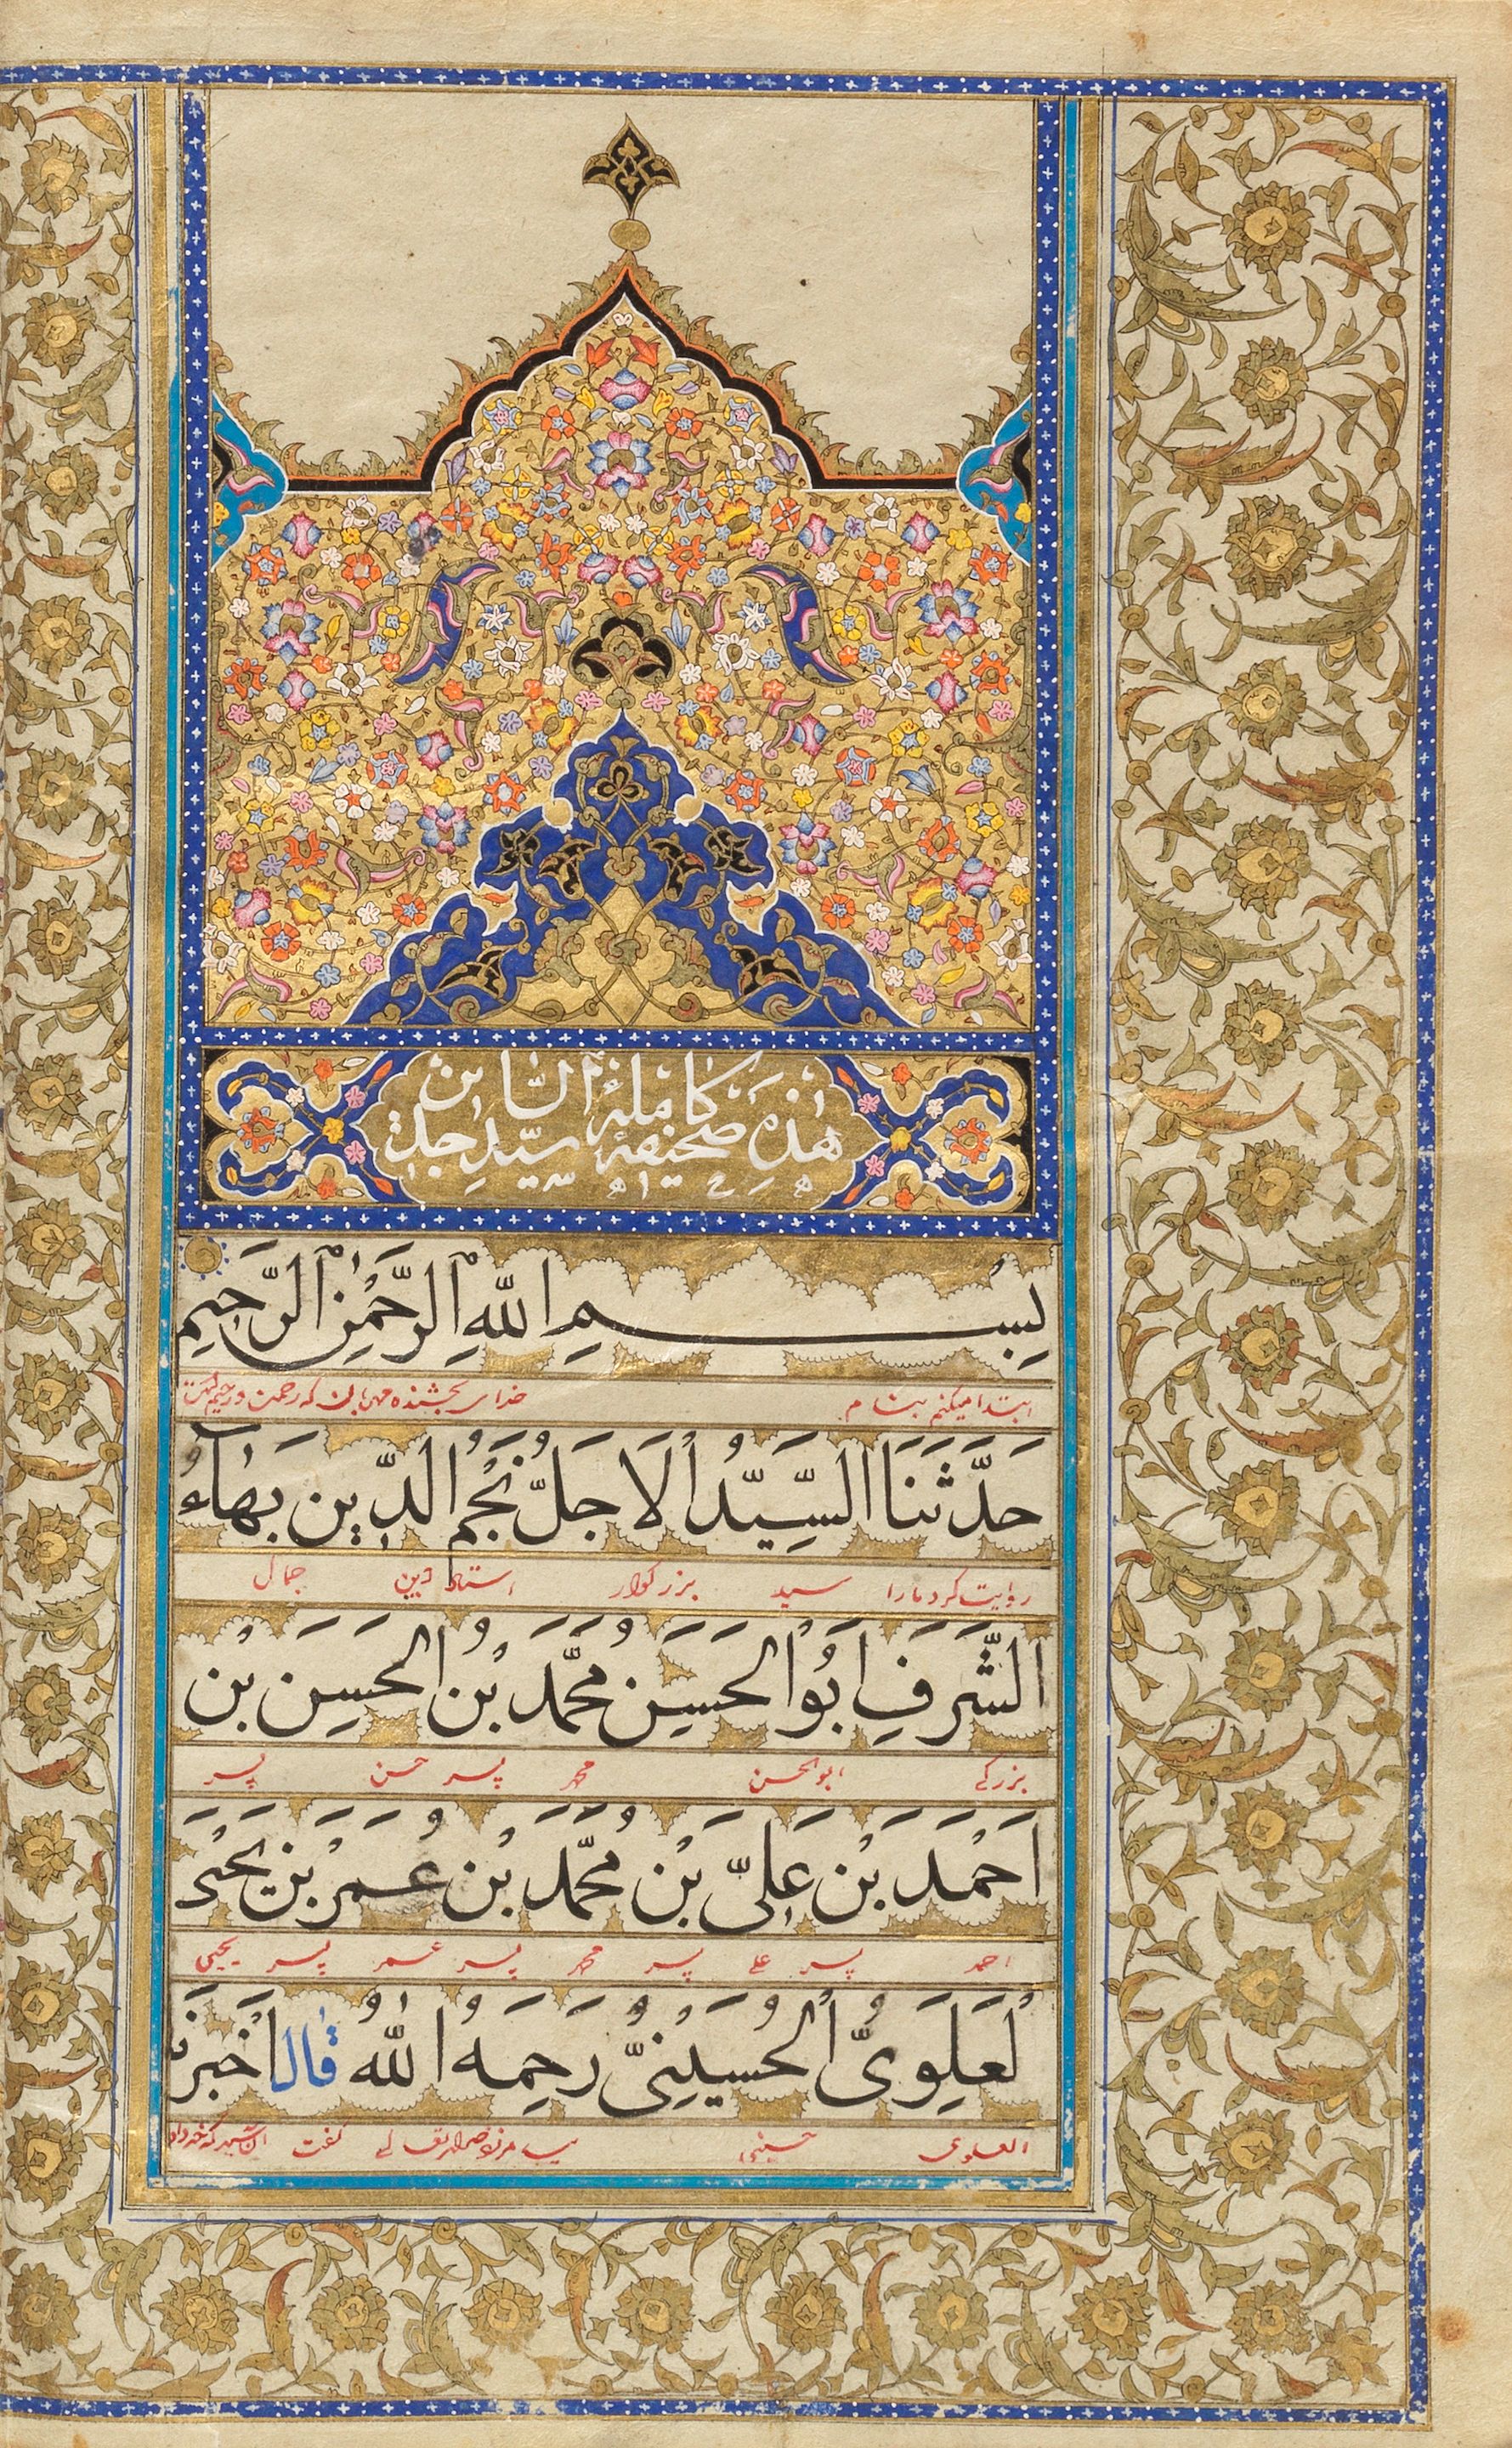 هٰذِهِ صَحیفَهٔ کامِلَهٔ سَیِّدِ السّاجِدین
بِسْمِ اللّٰهِ الرَّحْمٰنِ الرَّحیمِ
ابتدا میکنم بنام خدای بخشنده مهربان که رحمن و رحیم
حَدَّثَنَا السَّیِّدُ الْاَجَلُّ نَجْمُ الدّینِ بَهٰاءُ
روایت کرد مارا سید بزرکوار استاد دین جمال
الشَّرَفِ اَبُو الْحَسَنِ مُحَمَّدُ بْنُ الْحَسَنِ بْنِ
بزرکی ابوالحسن محمد پسر حسن پسر
اَحْمَدَ بْنِ عَلِیِّ بْنِ مُحَمَّدِ بْنِ عُمَرَ بْنِ یَحْیَی
احمد پسر علی پسر محمد پسر عمر پسر یحیی
لْعَلَوِیُّ الْحُسَیْنِیُّ رَحِمَهُ اللّٰهُ قٰالَ اَخْبَرَنَا
العلوی حسینی گفت